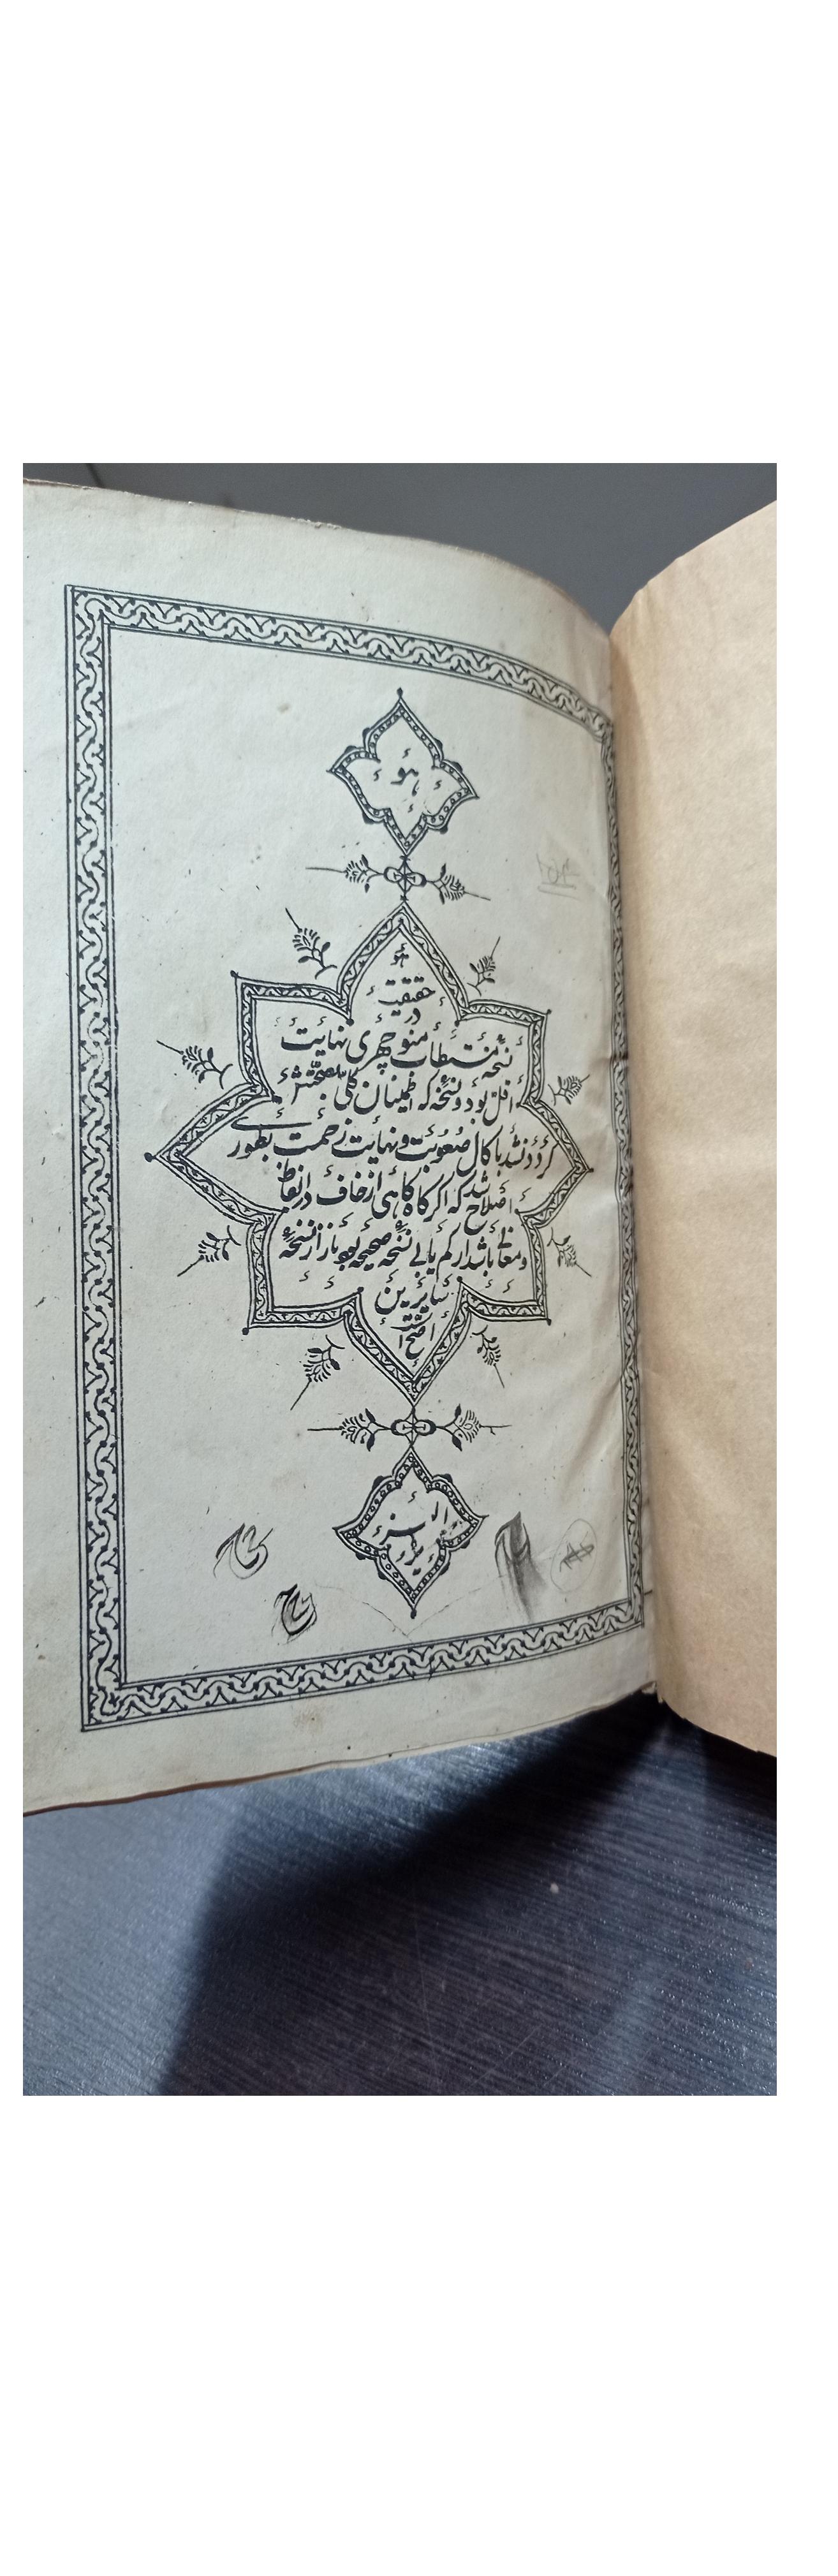 هو
هو
حقیقت
در
نسخه مسمطات منوچهری نهایت
اقل بود و نسخه که اطمینان کلی بصحتش
کردد نشد با کمال صعوبت و نهایت زحمت بطوری
اصلاح شد که اگر گاه کاهی از خلاف در الفاظ
و معانی باشد ار کم یابی نسخه صحیحه بود باز از نسخه
سایرین
اصح است